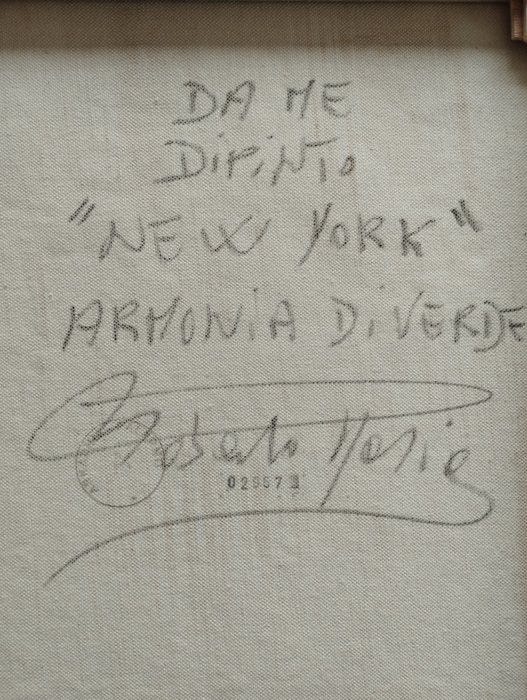 DA ME
DiPiNTo
"NEW YORK"
ARMONiA Di VERDE
Roberto Masia